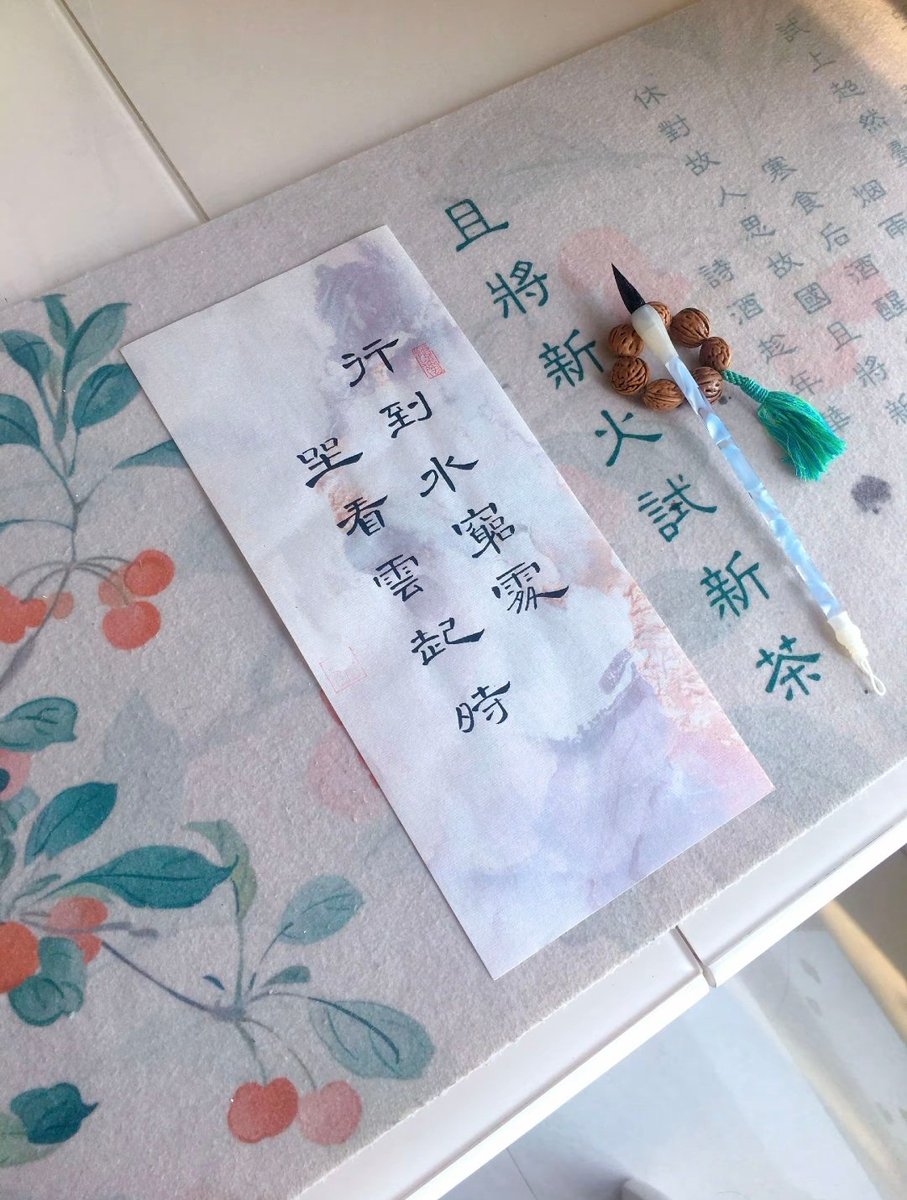 行到水窮處
坐看雲起時
且將新火試新茶
試上超然臺
烟雨
寒食后酒醒
休對故人思故國且將新
詩酒趁年華